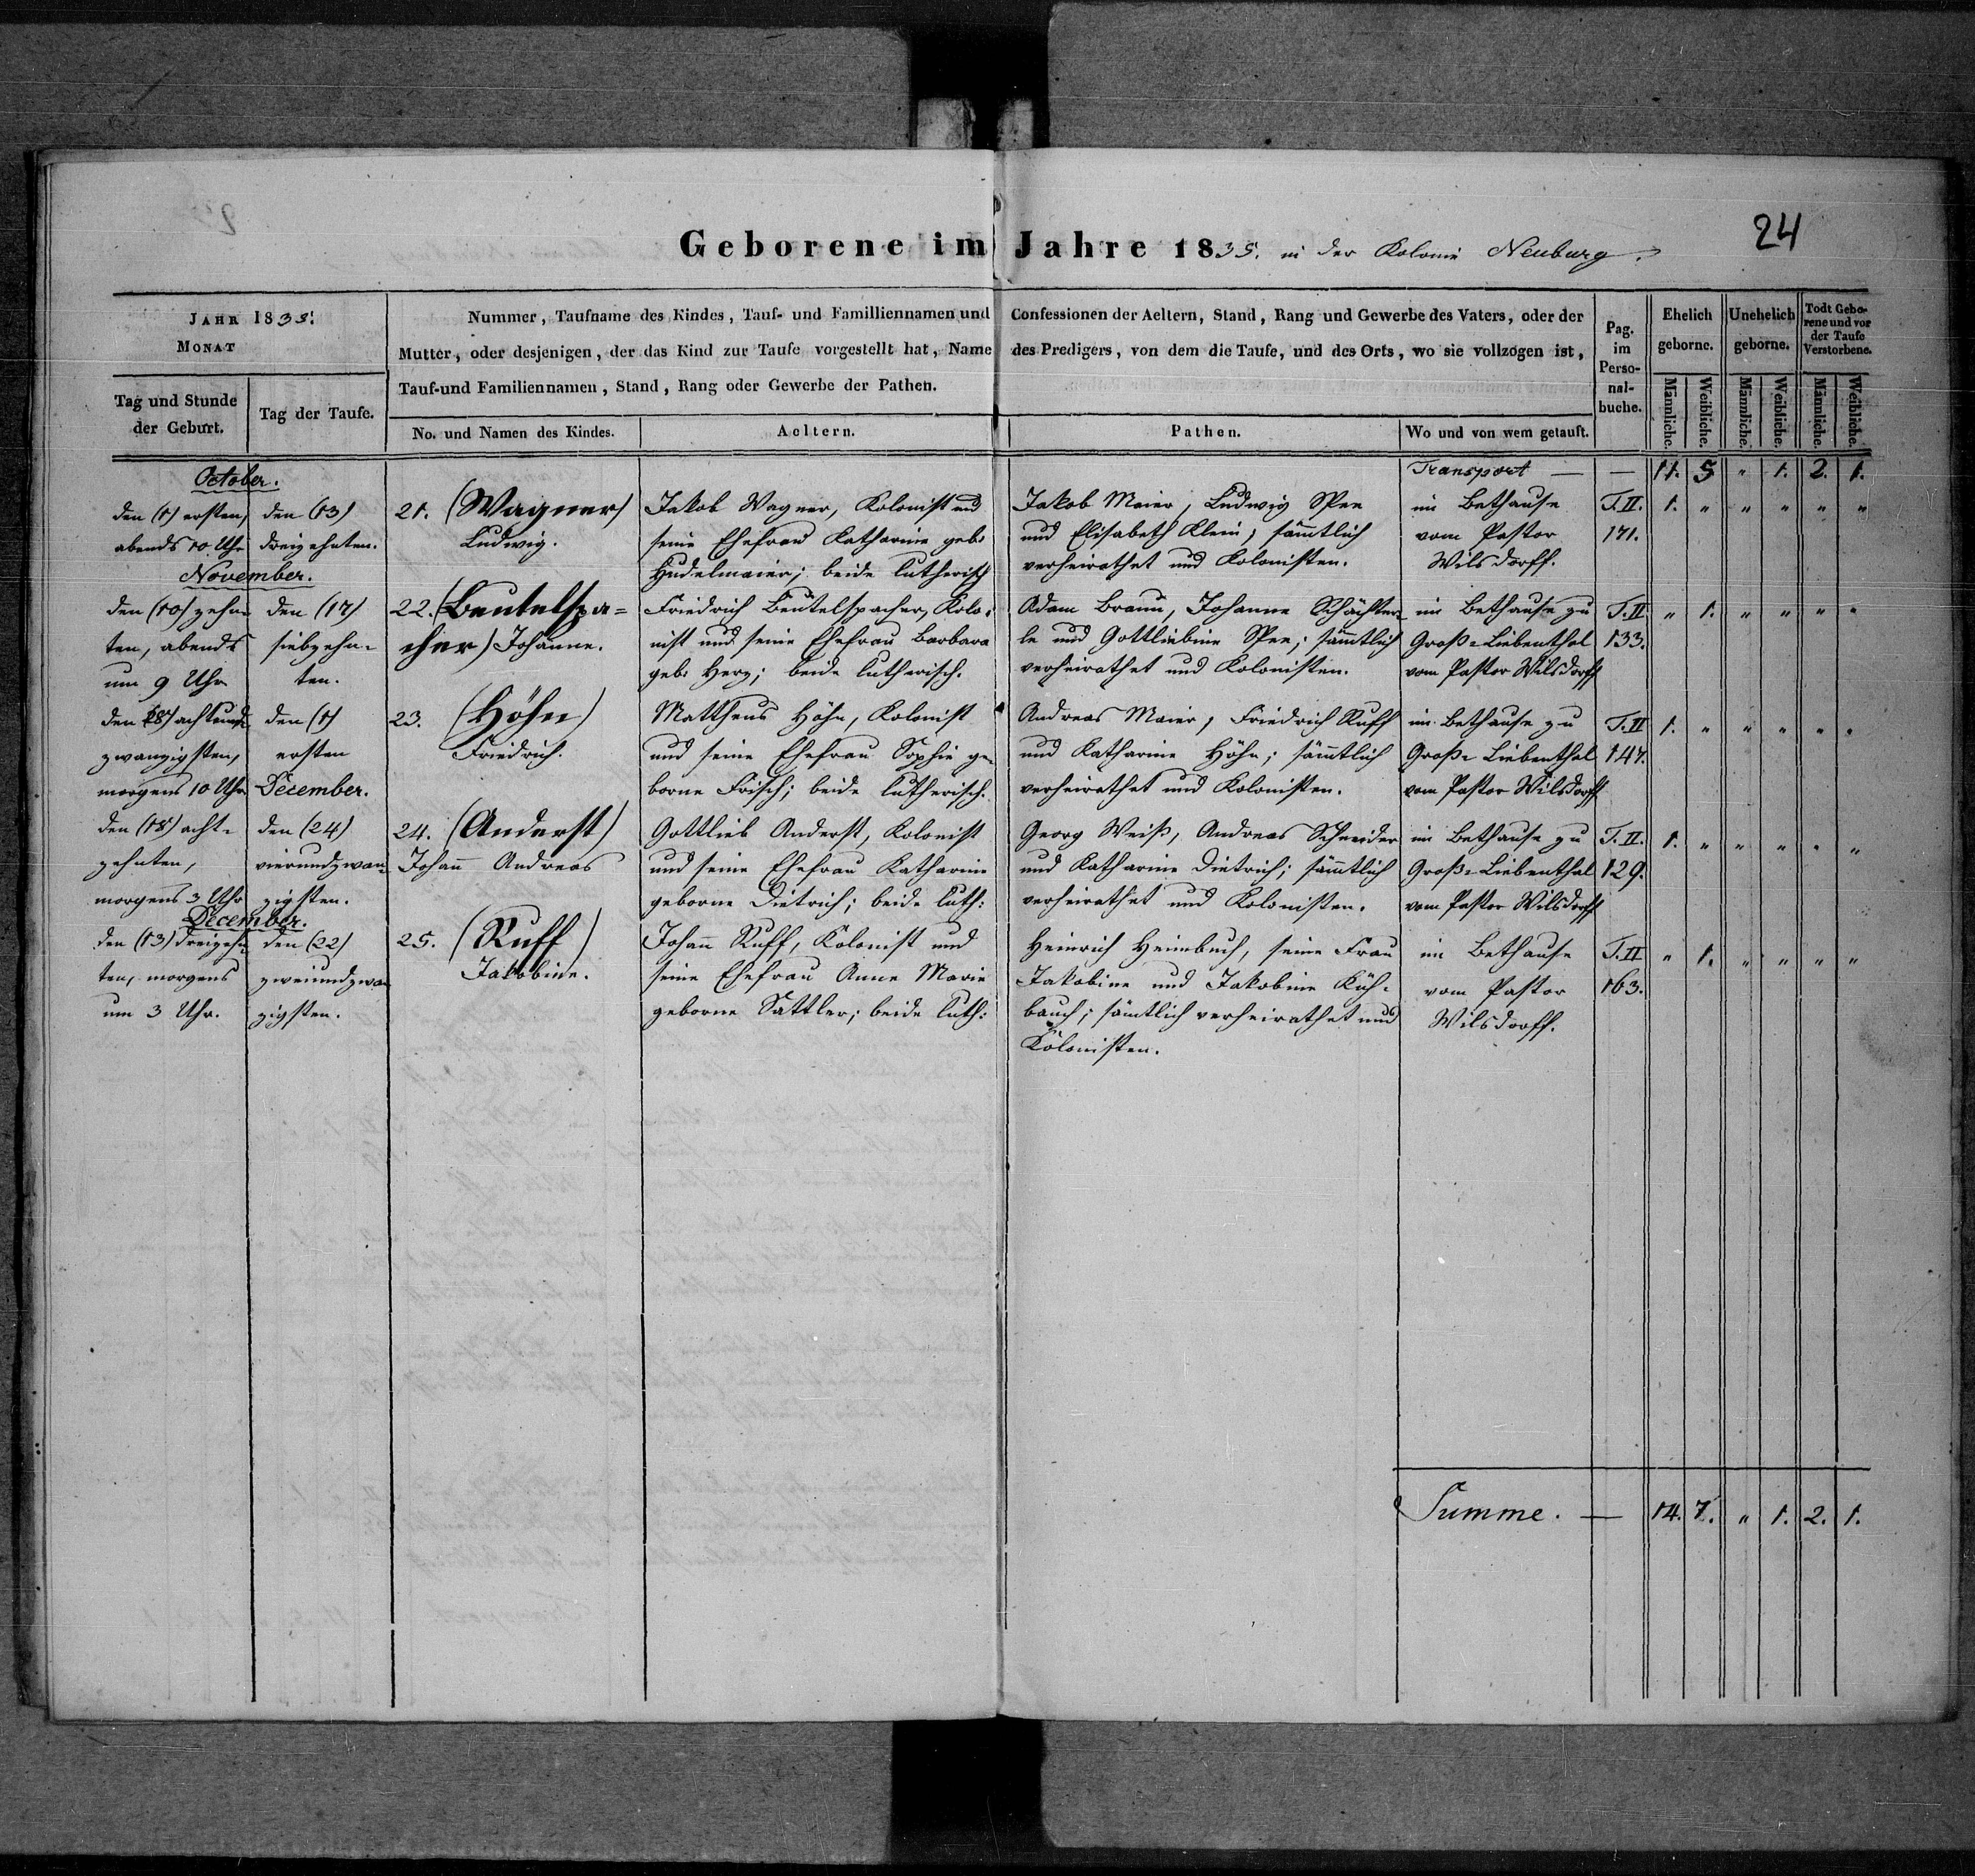 24
Geborene im Jahre 1835. in der Kolonie Neuburg.
JAHR 1835.
MONAT
Tag und Stunde
der Geburt.
Tag der Taufe.
Nummer, Taufname des Kindes, Tauf- und Familliennamen und Confessionen der Aeltern, Stand, Rang und Gewerbe des Vaters, oder der
Mutter, oder desjenigen, der das Kind zur Taufe vorgestellt hat, Name des Predigers, von dem die Taufe, und des Orts, wo sie vollzogen ist,
Tauf-und Familiennamen, Stand, Rang oder Gewerbe der Pathen.
No. und Namen des Kindes.
Aeltern.
Pathen.
Wo und von wem getauft.
Pag.
im
Perso-
nal-
buche.
Ehelich
geborne.
Unehelich
geborne.
Todt Gebo-
rene und vor
der Taufe
Verstorbene.
Männliche.
Weibliche.
Männliche.
Weibliche.
Männliche.
Weibliche.
Transport — — 11. 5 " 1. 2. 1.
October.
den (1) ersten,
abends 10 Uhr
den (13)
dreizehnten.
21. (Wagner)
Ludwig.
Jakob Wagner, Kolonist und
seine Ehefrau Katharine geb:
Hudelmaier; beide lutherisch
Jakob Maier, Ludwig Spen
und Elisabeth Klein; sämmtlich
verheirathet und Kolonisten.
im Bethause
vom Pastor
Wilsdorff.
T.II.
171.
1. " " " " "
November.
den (10) zehn-
ten, abends
um 9 Uhr
den (17)
siebzehn-
ten.
22. (Beutelspa=
cher) Johanne.
Friedrich Beutelspacher, Kolo-
nist und seine Ehefrau Barbara
geb: Herz; beide lutherisch.
Adam Braun, Johanne Schächter-
le und Gottliebine Spen; sämmtlich
verheirathet und Kolonisten.
im Bethause zu
Groß-Liebenthal
vom Pastor Wilsdorff
T.II
133.
" 1. " " " "
den (28) achtund-
zwanzigsten,
morgens 10 Uhr
den (1)
ersten
December.
23. (Höhn)
Friedrich.
Mattheus Höhn, Kolonist
und seine Ehefrau Sophie ge-
borne Frisch; beide lutherisch.
Andreas Maier, Friedrich Ruff
und Katharine Höhn; sämmtlich
verheirathet und Kolonisten.
im Bethause zu
Groß-Liebenthal
vom Pastor Wilsdorff
T.II
147.
1. " " " " "
den (18) acht-
zehnten,
morgens 3 Uhr
den (24)
vierundzwan-
zigsten.
24. (Anderst)
Johann Andreas
Gottlieb Anderst, Kolonist
und seine Ehefrau Katharine
geborne Dietrich; beide luth:
Georg Weiß, Andreas Schneider
und Katharine Dietrich; sämmtlich
verheirathet und Kolonisten.
im Bethause zu
Groß-Liebenthal
vom Pastor Wilsdorff
T.II.
129.
1. " " " " "
December.
den (13) dreizehn-
ten, morgens
um 3 Uhr.
den (22)
zweiundzwan-
zigsten.
25. (Ruff)
Jakobine.
Johann Ruff, Kolonist und
seine Ehefrau Anne Marie
geborne Sattler; beide luth:
Heinrich Heimbuch, seine Frau
Jakobine und Jakobine Küh-
bauch; sämtlich verheirathet und
Kolonisten.
im Bethause
vom Pastor
Wilsdorff.
T.II
163.
" 1. " " " "
Summe. — 14. 7. " 1. 2. 1.